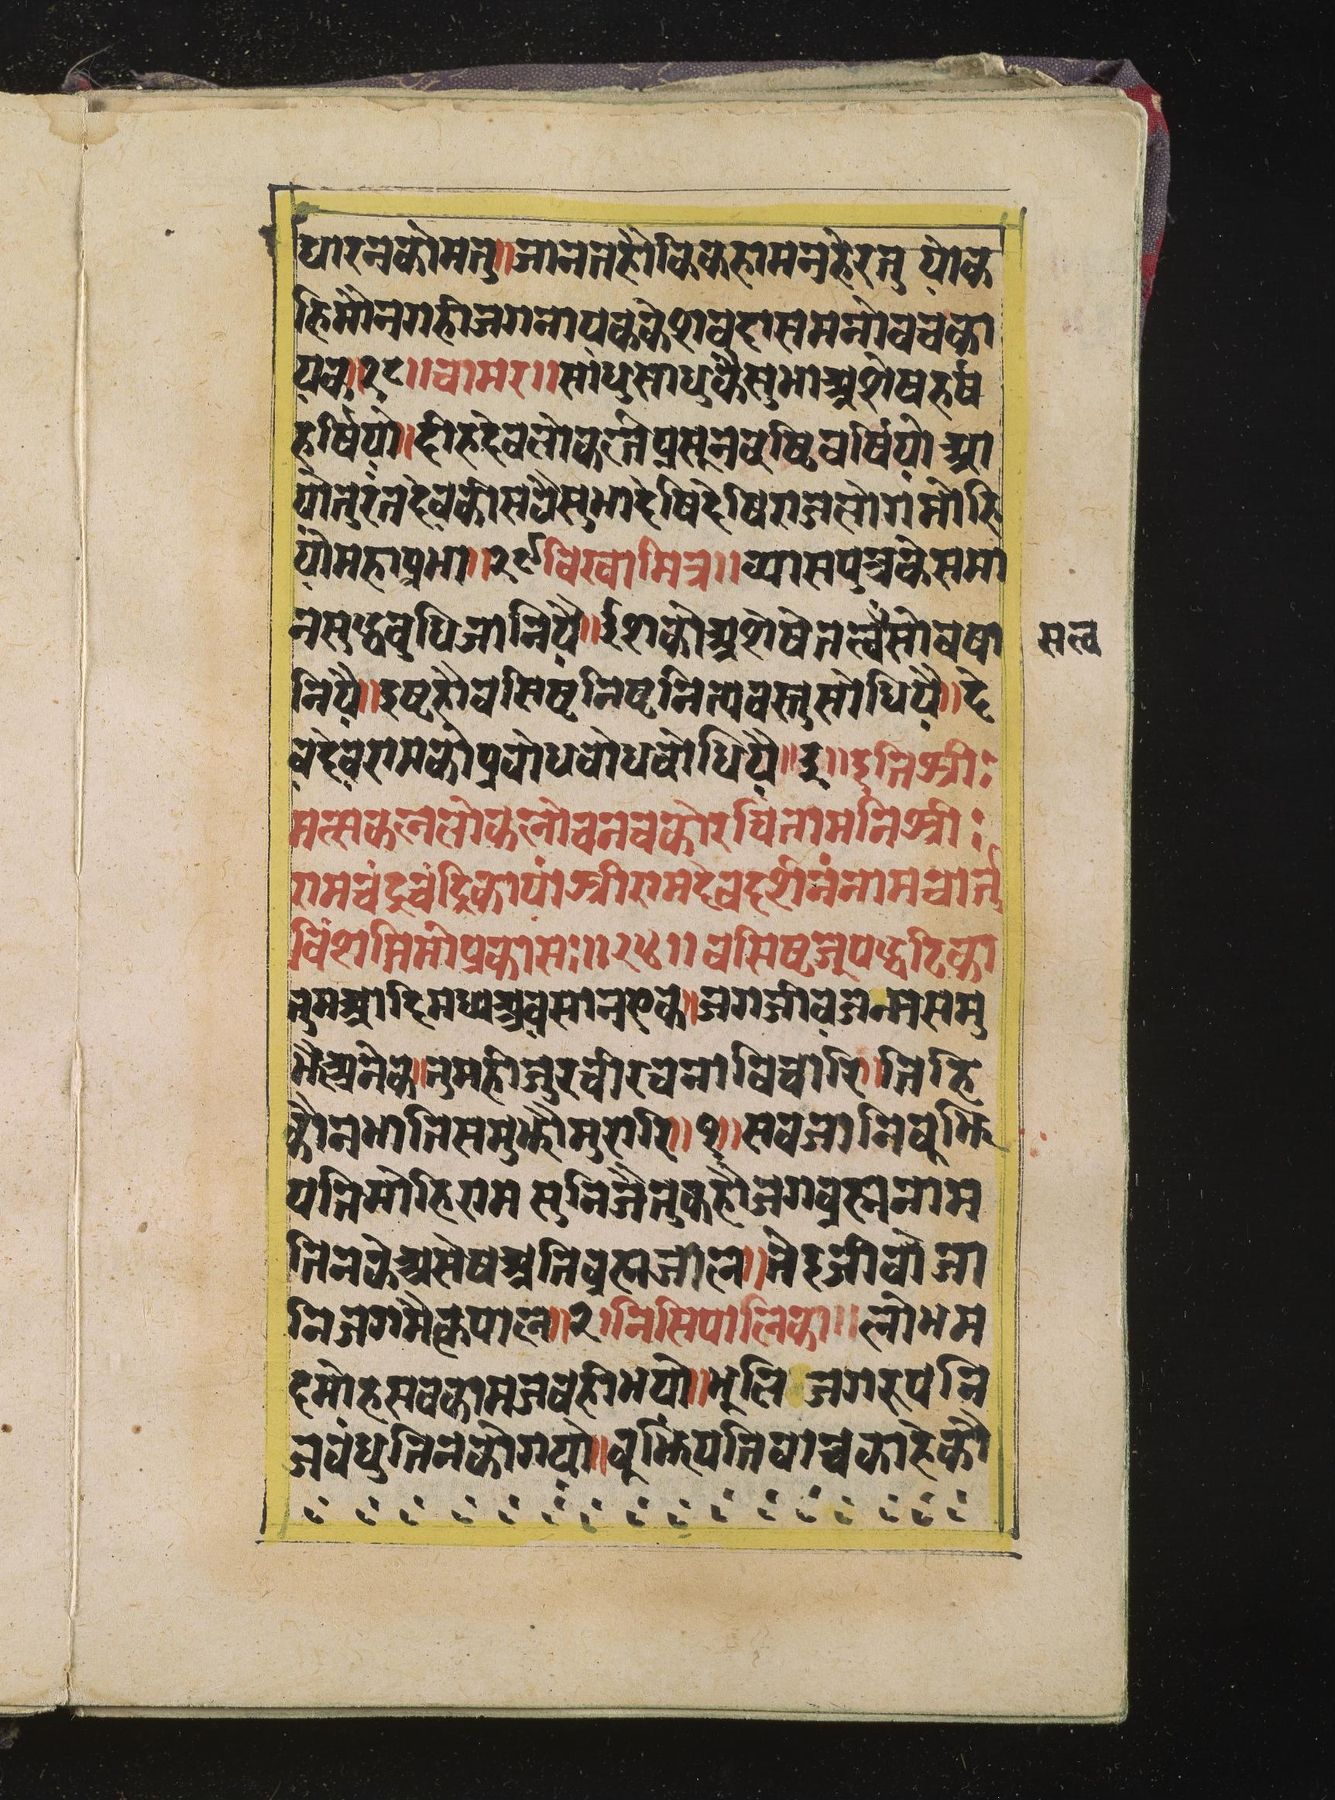 धारनकोमनु॥जाननहौकिकहामनहेरनु योक
हिमौनगहीजगनायककेशवदासमनोवचका
यक॥२८॥चामर॥साधुसाधुकैसुभाअशेषहर्ष
हर्षियो॥दीहदेवलोकतेंप्रसूनवृष्टिवर्षियो आ
योतुरंतदेवकीसवैसुभादेषिदेषिराजलोगमोहि
योमहाप्रभा॥२९विस्वामित्र॥व्यासपुत्रकेसमा
नसुद्धवुधिजानियै॥ईशकोअशेषेतत्वसोवषा
सत्व
नियै॥इष्टहौवसिष्टनिष्टनित्यवस्तुसोधियै॥दे
वदेवरामकोप्रवोधवोधवोधियै॥३॥इतिश्री:
मत्सकललोकलोचनचकोरचिंतामनिश्री:
रामचंद्रचंद्रिकायांश्रीरामदेवदर्शनंनामचातु
विंशतिमोप्रकासः॥२४॥ वसिष्टजूपद्धटिका
तुमआदिमध्यअवसानएक॥जगजीवजन्मसमु
झैअनेक॥तुमहीजुरचीरचनाविचारि॥तिहि
कौनभातिसमुझौमुरारि॥१॥सवजानिवूझि
यतिमोहिराम सुनिजैजुकहौजगव्रह्मनाम
तिनकेअसेषअतिव्रह्मजाल॥तेइजीवोजा
निजगमैकृपाल॥२।निसिपालिका॥लोभम
दमोहसवकामजवहीभयो॥भूलि जगरुपनि
जवंधुतिनकोगयो॥वूझियतिवाचकाहेकौ